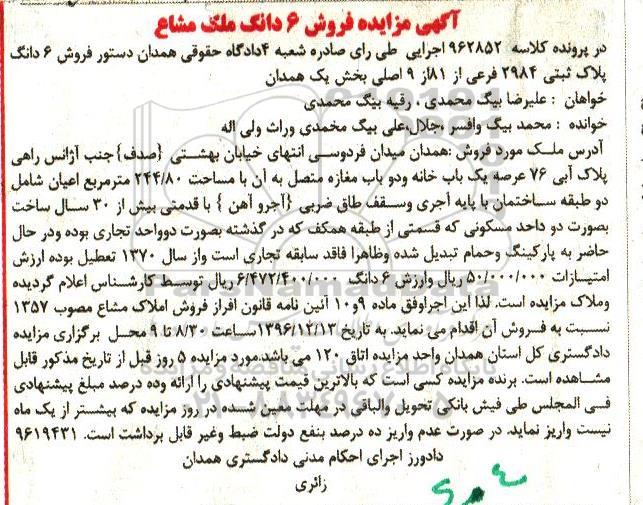 آگهی مزایده فروش ۶ دانگ ملک مشاع
در پرونده کلاسه ۹۶۲۸۵۲ اجرایی طی رای صادره شعبه ۴دادگاه حقوقی همدان دستور فروش ۶ دانگ
پلاک ثبتی ۲۹۸۴ فرعی از ۸۱از ۹ اصلی بخش یک همدان
خواهان : علیرضا بیگ محمدی ، رقیه بیگ محمدی
خوانده : محمد بیگ وافسر ،جلال،علی بیگ محمدی وراث ولی اله
آدرس ملک مورد فروش :همدان میدان فردوسی انتهای خیابان بهشتی {صدف}جنب آژانس راهی
پلاک آبی ۷۶ عرصه یک باب خانه ودو باب مغازه متصل به آن با مساحت ۲۴۴/۸۰ مترمربع اعیان شامل
دو طبقه ساختمان با پایه آجری وسقف طاق ضربی {آجرو آهن } با قدمتی بیش از ۳۰ سال ساخت
بصورت دو داحد مسکونی که قسمتی از طبقه همکف که در گذشته بصورت دوواحد تجاری بوده ودر حال
حاضر به پارکینگ وحمام تبدیل شده وظاهرا فاقد سابقه تجاری است واز سال ۱۳۷۰ تعطیل بوده ارزش
امتیازات ۵۰/۰۰۰/۰۰۰ ریال وارزش ۶ دانگ ۶/۴۷۲/۴۰۰/۰۰۰ ریال توسط کارشناس اعلام گردیده
وملاک مزایده است. لذا این اجراوفق ماده ۹و۱۰ آئین نامه قانون افراز فروش املاک مشاع مصوب ۱۳۵۷
نسبت به فروش آن اقدام می نماید. به تاریخ ۱۳۹۶/۱۲/۱۳ساعت ۸/۳۰ تا ۹ محل برگزاری مزایده
دادگستری کل استان همدان واحد مزایده اتاق ۱۲۰ می باشد.مورد مزایده ۵ روز قبل از تاریخ مذکور قابل
مشاهده است. برنده مزایده کسی است که بالاترین قیمت پیشنهادی را ارائه وده درصد مبلغ پیشنهادی
فی المجلس طی فیش بانکی تحویل والباقی در مهلت معین شده در روز مزایده که بیشتر از یک ماه
نیست واریز نماید. در صورت عدم واریز ده درصد بنفع دولت ضبط وغیر قابل برداشت است. ۹۶۱۹۴۳۱
دادورز اجرای احکام مدنی دادگستری همدان
زائری